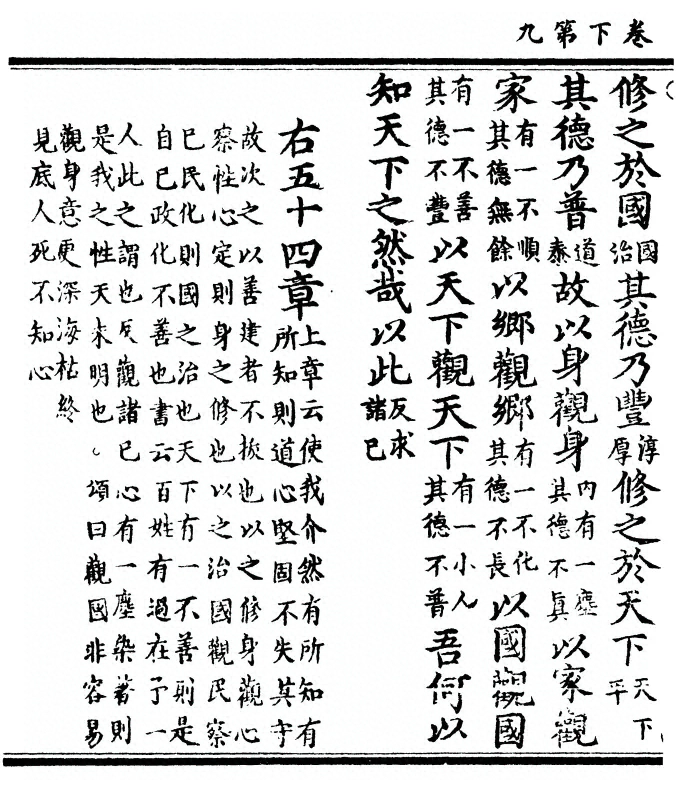 卷下第九
修之於國國治其德乃豐淳厚修之於天下天下平
其德乃普道泰故以身觀身內有一塵其德不真以家觀
家有一不順其德無餘以鄉觀鄉有一不化其德不長以國觀國
有一不善其德不豐以天下觀天下有一小人其德不普吾何以
知天下之然哉以此反求諸已
右五十四章上章云使我介然有所知有
所知則道心堅固不失其守
故次之以善建者不拔也以之修身觀心
察性心定則身之修也以之治國觀民察
已民化則國之治也天下有一不善則是
自已政化不善也書云百姓有過在予一
人此之謂也反觀諸已心有一塵染著則
是我之性天未明也。頌曰觀國非容易
觀身意更深海枯終
見底人死不知心